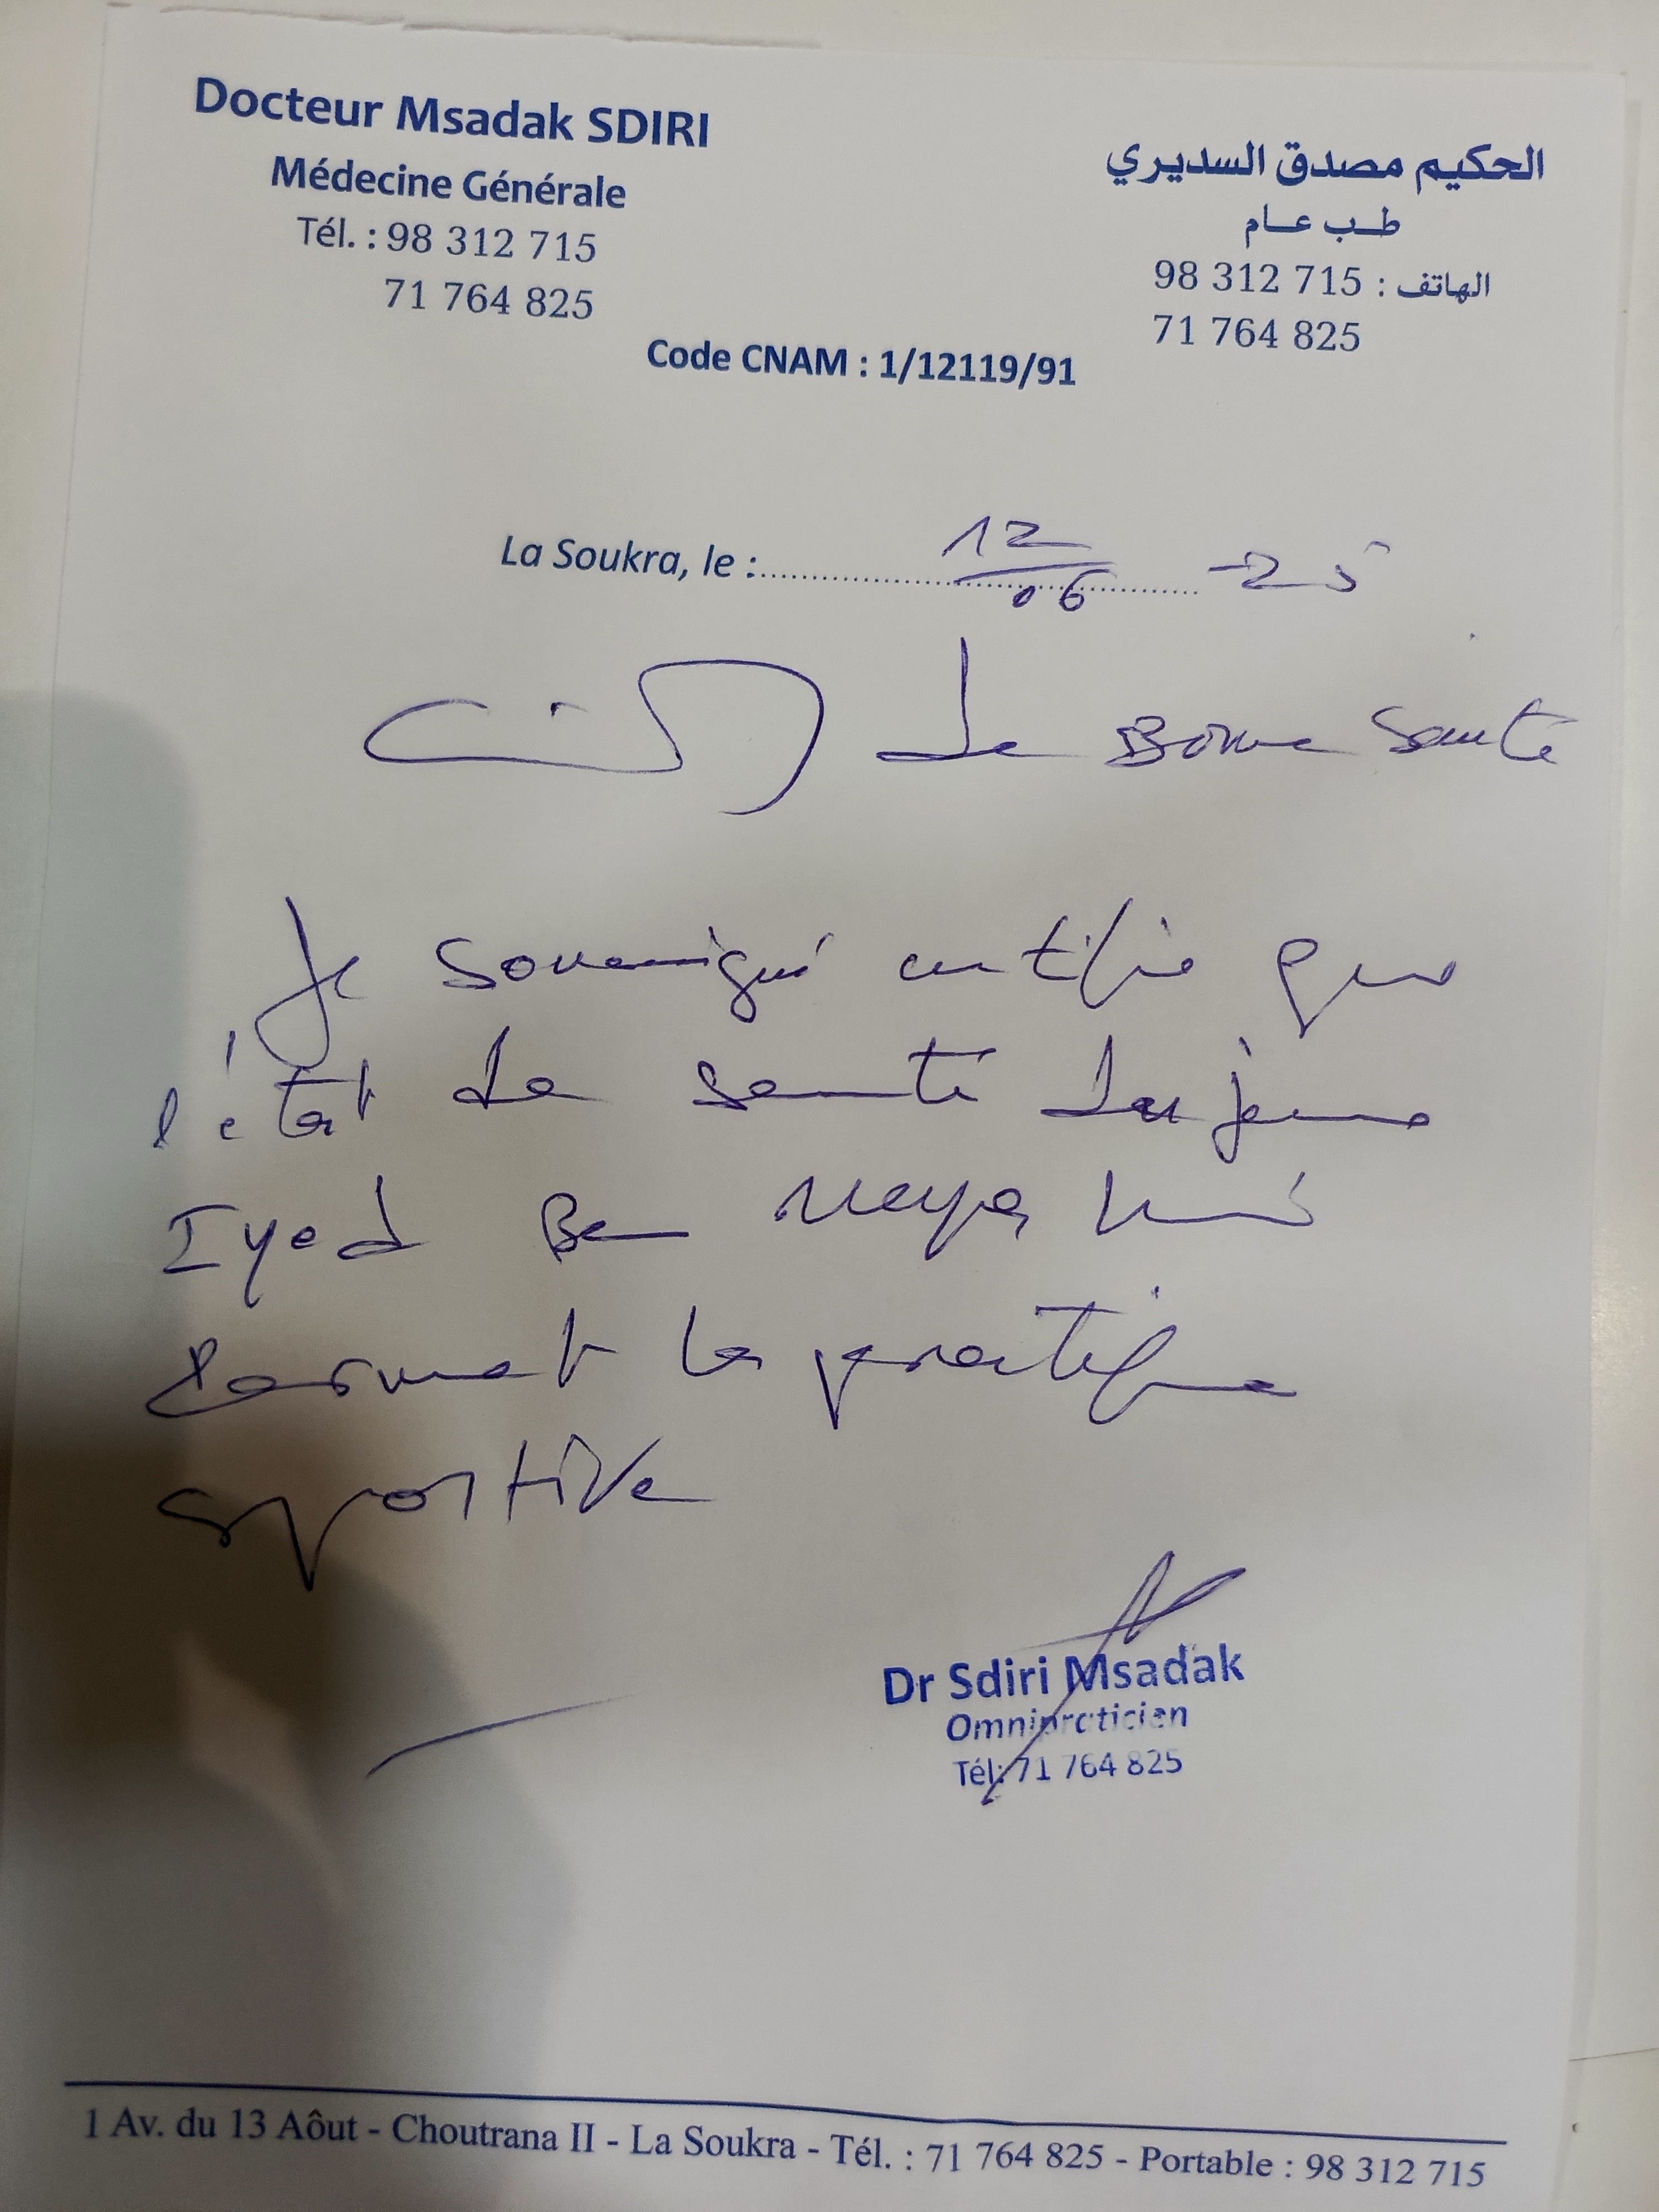 Docteur Msadak SDIRI
Médecine Générale
Tél. : 98 312 715
71 764 825
الحكيم مصدق السديري
طب عام
الهاتف : 98 312 715
71 764 825
Code CNAM : 1/12119/91
La Soukra, le : 12/06 - 25
de Bonne Santé
Je soussigné certifie que
l'état de santé du jeune
Iyed Ben
permet la pratique
sportive
Dr Sdiri Msadak
Omnipraticien
Tél: 71 764 825
1 Av. du 13 Aôut - Choutrana II - La Soukra - Tél. : 71 764 825 - Portable : 98 312 715